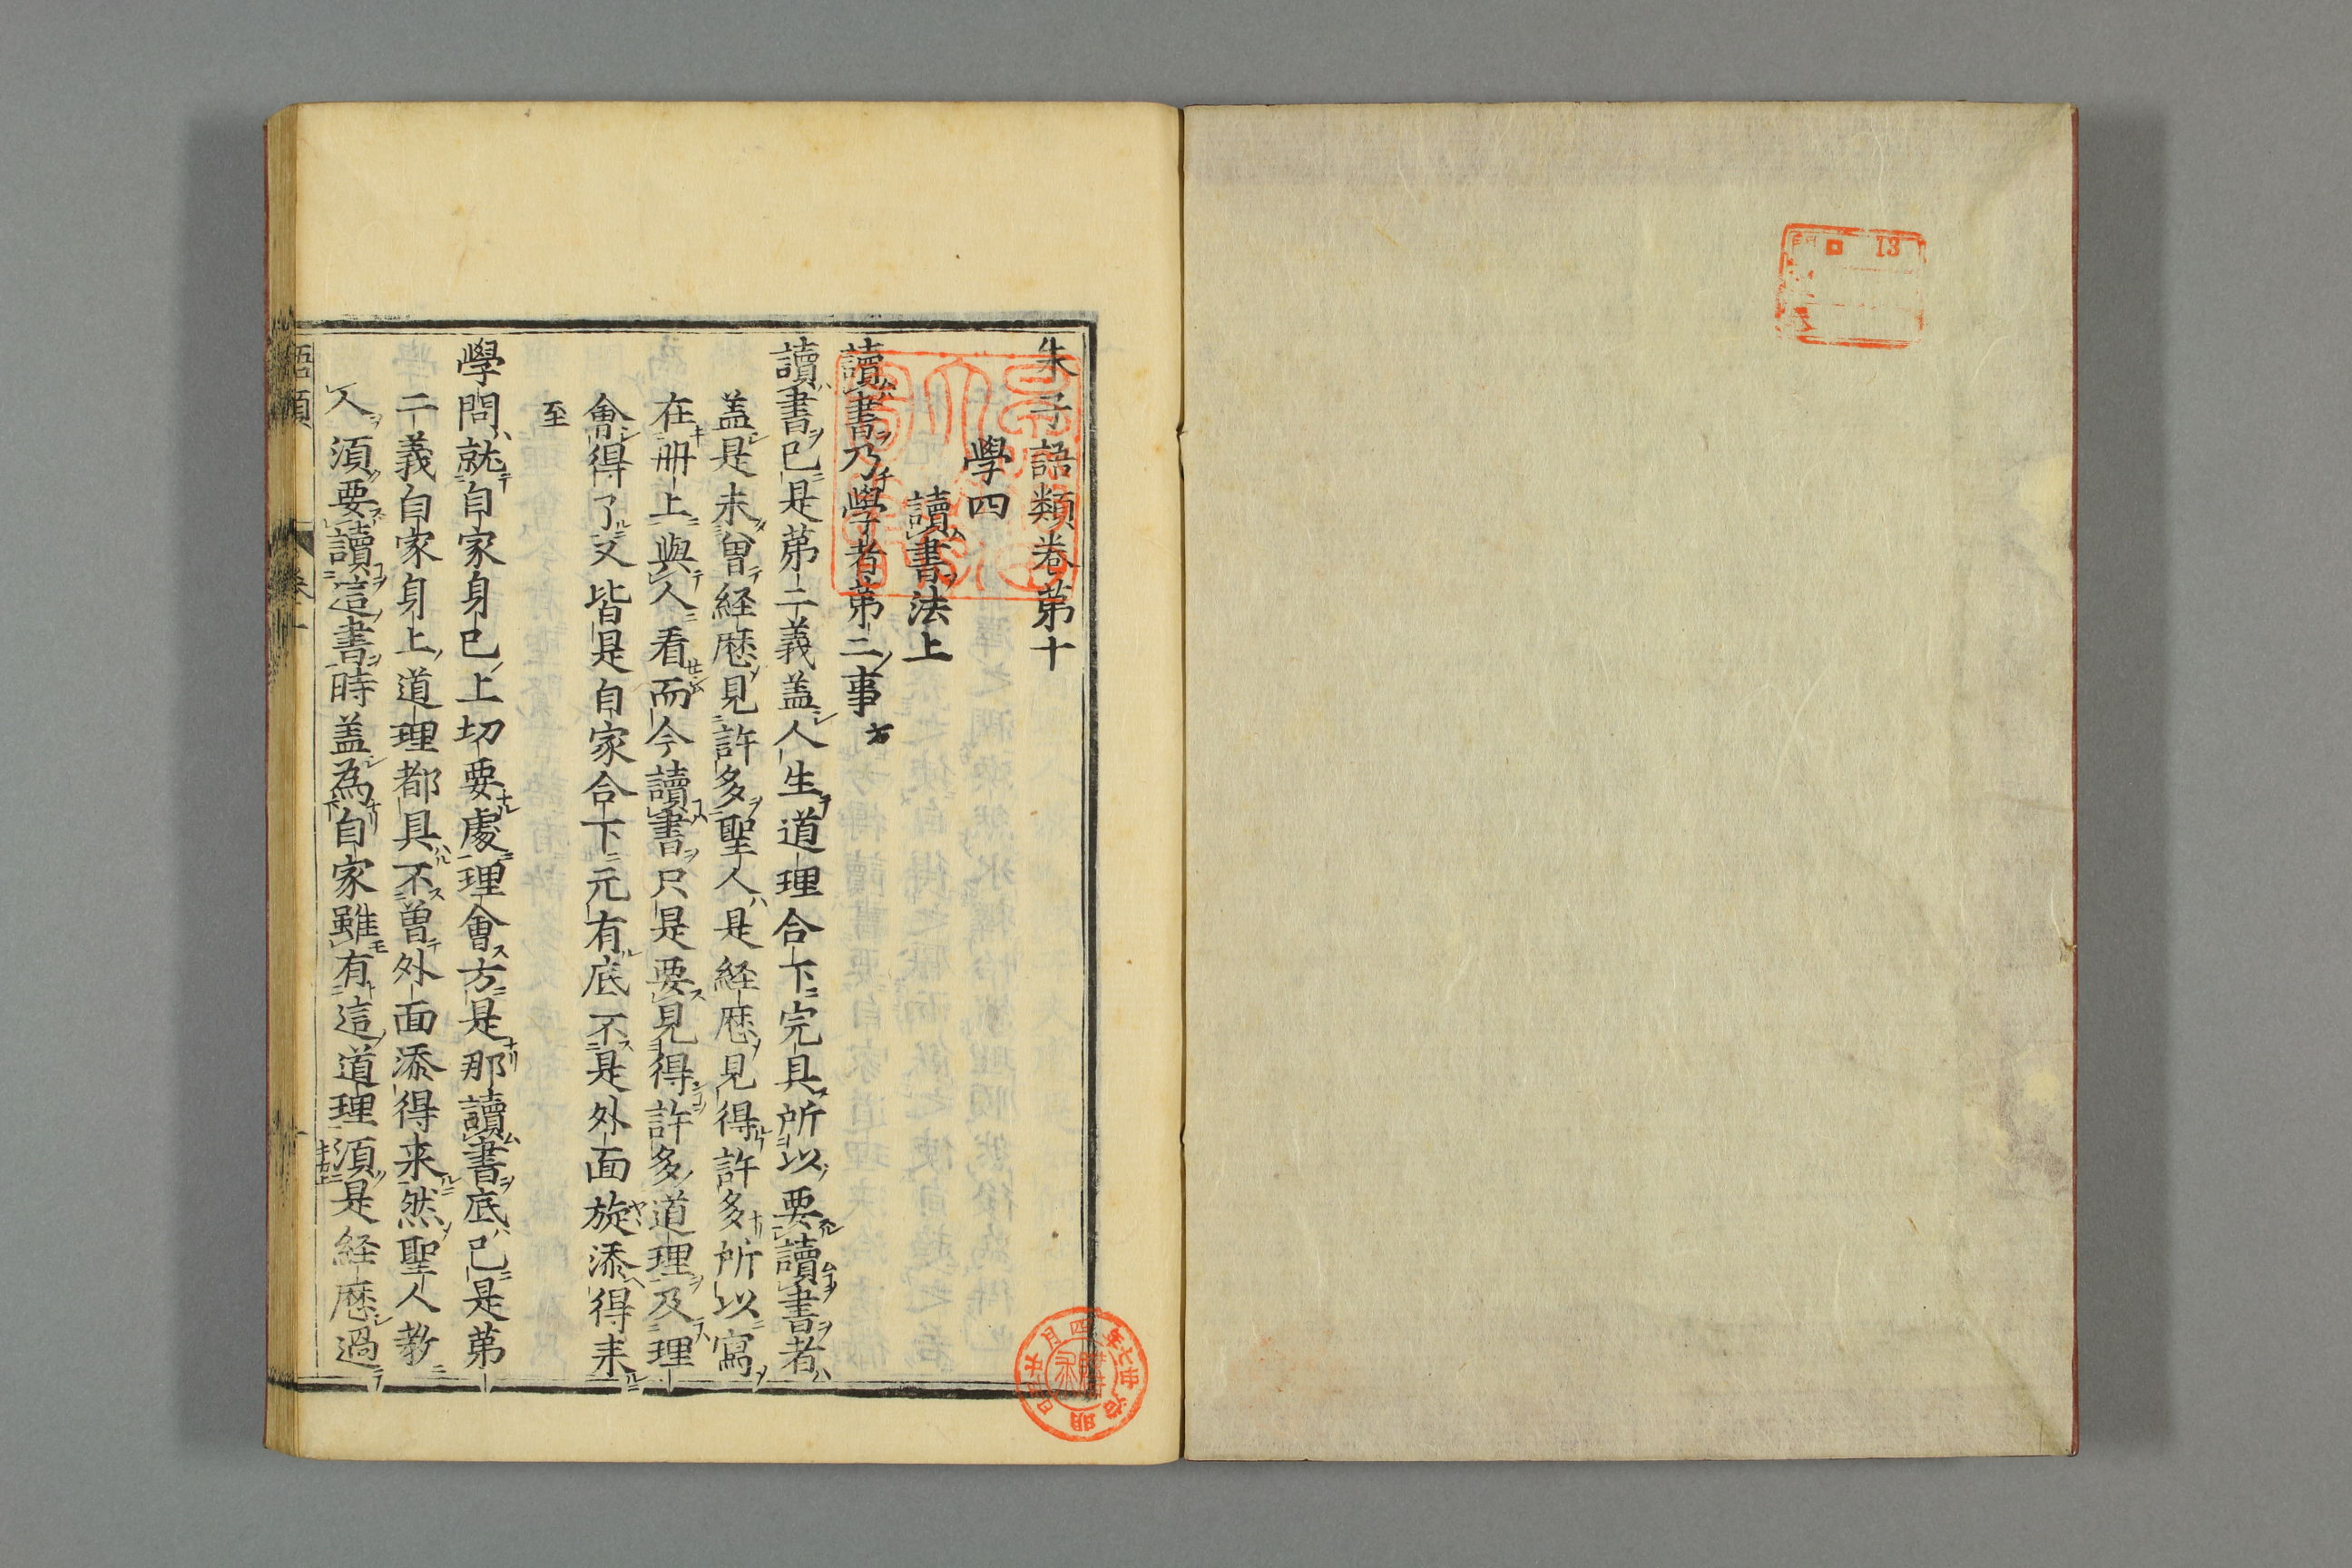 朱子語類卷第十
學四
讀書法上
讀書乃學者第二事 方
讀書已是第二義盖人生道理合下完具所以要讀書者
盖是未曾経歴見許多聖人是経歴見得許多所以寫
在冊上與人看而今讀書只是要見得許多道理及理
會得了又皆是自家合下元有底不是外面旋添得来
至
學問就自家身已上切要處理會方是那讀書底已是第
二義自家身上道理都具不曾外面添得来然聖人教
人須要讀這書時盖為自家雖有這道理須是経歴過
語類
卷十
一
13